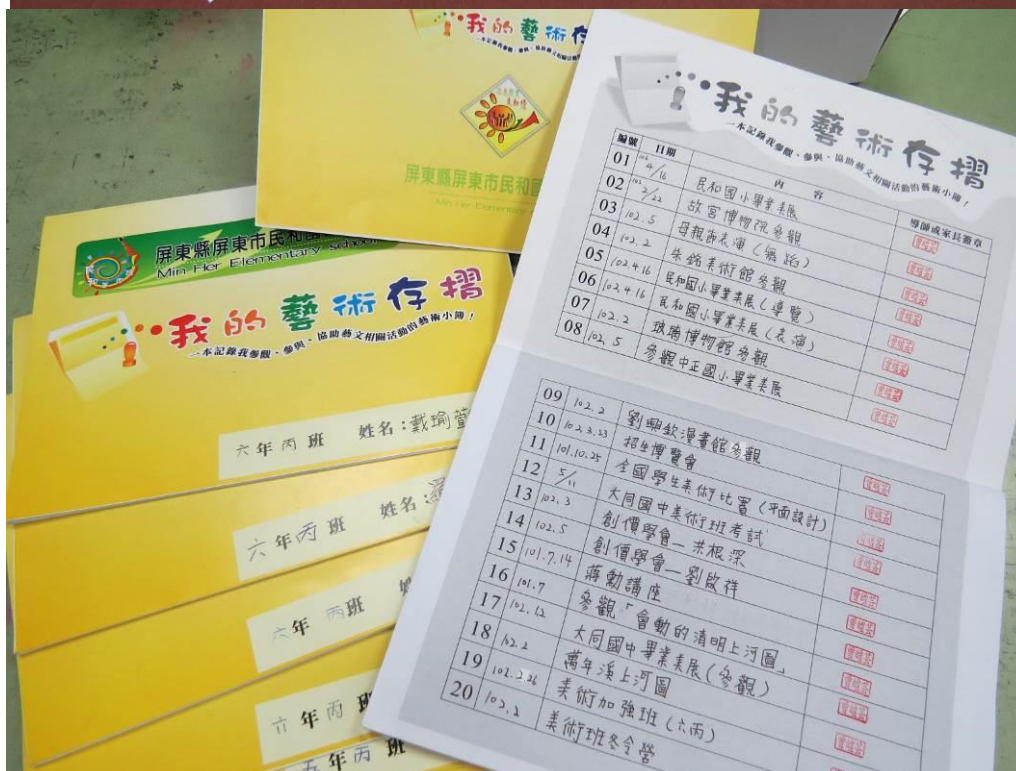 我的藝術存
屏東縣屏東市民和國
Min Her Elementary
屏東縣屏東市民和國
Min Her Elementary School
我的藝術存摺
一本記錄我參觀、參與、協助藝文相關活動的藝術小簿！
六年丙班 姓名：戴瑜萱
六年丙班 姓名：
六年丙班
六年丙班
五年丙班
我的藝術存摺
一本記錄我參觀、參與、協助藝文相關活動的藝術小簿！
編號 日期 內容 導師或家長簽章
01 102 4/16 民和國小畢業美展
02 102 2/22 故宮博物院參觀
03 102.5 母親節表演（舞蹈）
04 102.2 朱銘美術館參觀
05 102.4.16 民和國小畢業美展（導覽）
06 102.4.16 民和國小畢業美展（表演）
07 102.2 玻璃博物館參觀
08 102.5 參觀中正國小畢業美展
09 102.2 劉興欽漫畫館參觀
10 102.3.23 招生博覽會
11 101.10.25 全國學生美術比賽（平面設計）
12 5/11 大同國中美術班考試
13 102.3 創價學會—洪根深
14 102.5 創價學會—劉啟祥
15 101.7.14 蔣勳講座
16 101.7 參觀「會動的清明上河圖」
17 102.12 大同國中畢業美展（參觀）
18 102.2 萬年溪上河圖
19 102.2.26 美術加強班（六丙）
20 102.2 美術班冬令營